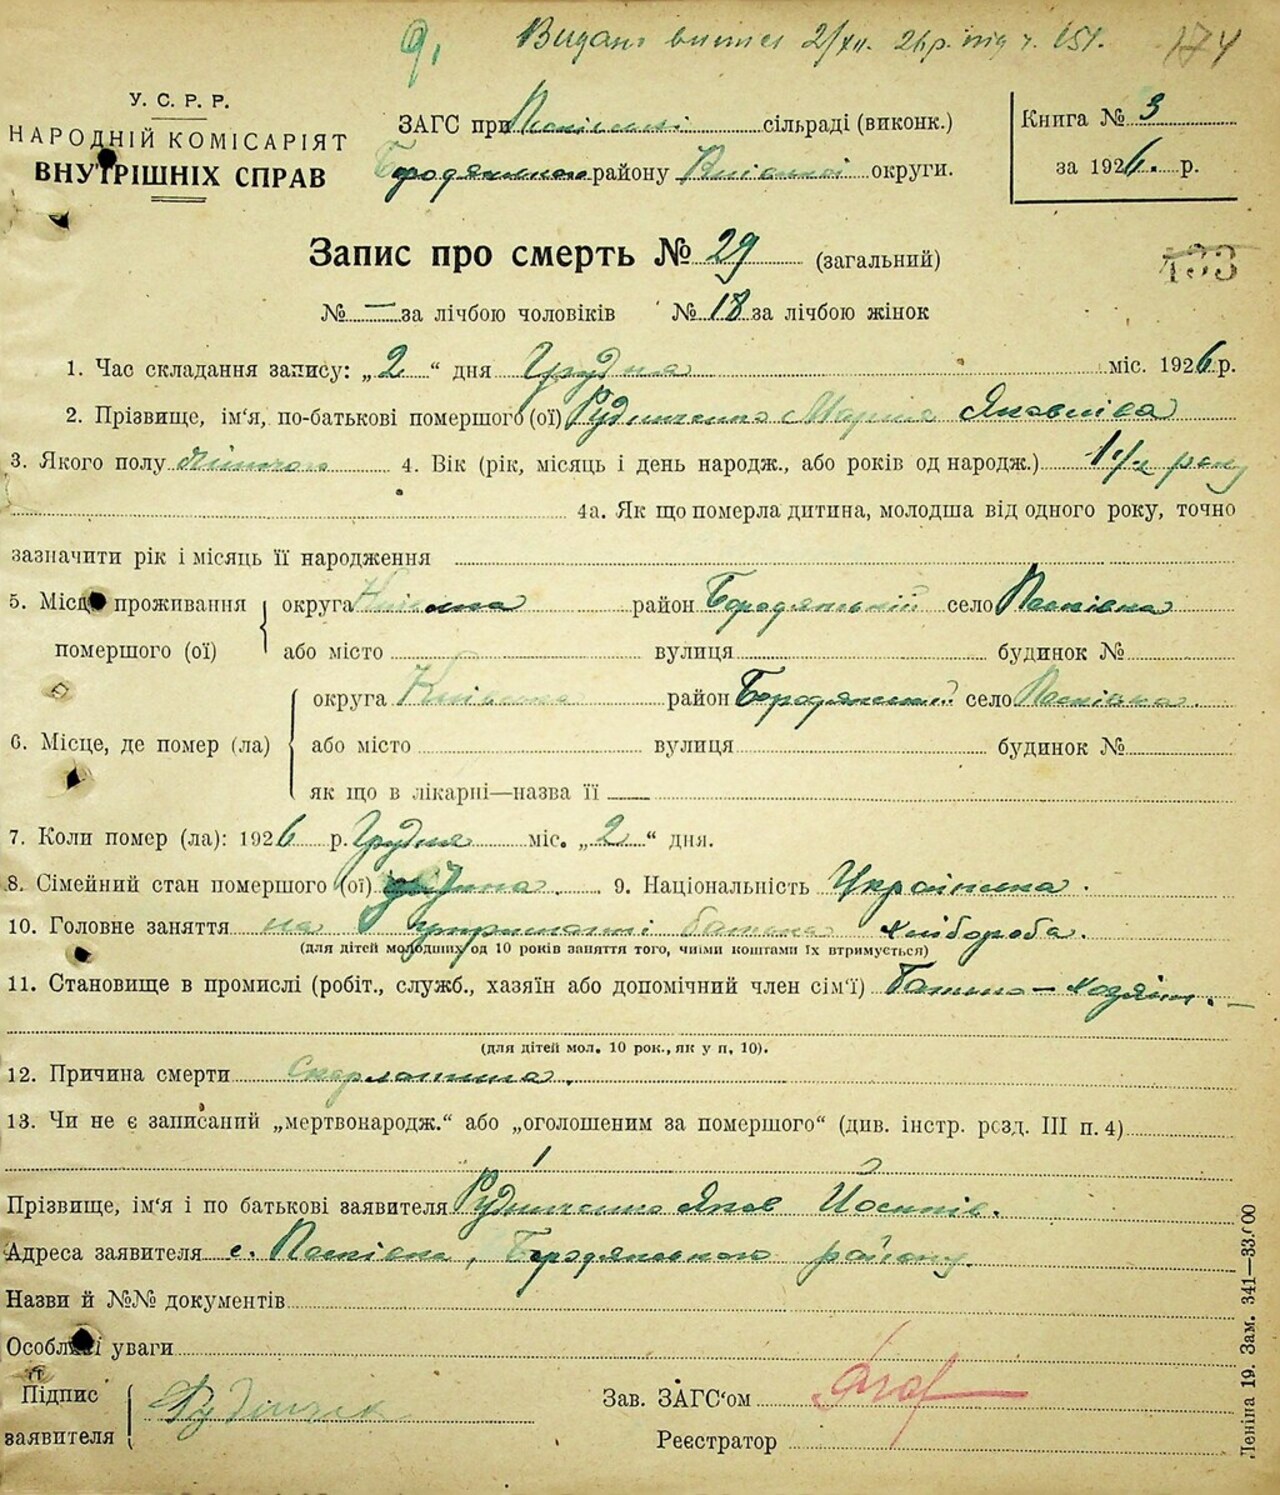 9. Видано витяг 2/XII. 26 р. під ч. 151. 174
У. С. Р. Р.
НАРОДНІЙ КОМІСАРІЯТ
ВНУТРІШНІХ СПРАВ
ЗАГС при сільраді (виконк.)
Бородянського району Київської округи.
Книга № 3
за 1926. р.
Запис про смерть № 29 (загальний)
433
№ — за лічбою чоловіків № 18 за лічбою жінок
1. Час складання запису: „2“ дня Грудня міс. 1926 р.
2. Прізвище, ім'я, по-батькові помершого (ої) Рудниченко Марія Яковлівна
3. Якого полу жіночого 4. Вік (рік, місяць і день народж., або років од народж.) 1 1/2 року
4а. Як що померла дитина, молодша від одного року, точно
зазначити рік і місяць її народження
5. Місце проживання помершого (ої) округа Київська район Бородянський село Пилиповка
або місто вулиця будинок №
6. Місце, де помер (ла) округа Київська район Бородянський село
або місто вулиця будинок №
як що в лікарні—назва її —
7. Коли помер (ла): 1926 р. Грудня міс. „2“ дня.
8. Сімейний стан помершого (ої) дитина. 9. Національність Українка.
10. Головне заняття на утриманні батька хлібороба.
(для дітей молодших од 10 років заняття того, чиїми коштами їх втримується)
11. Становище в промислі (робіт., служб., хазяїн або допомічний член сім'ї) Батько – хазяїн. –
(для дітей мол. 10 рок., як у п. 10).
12. Причина смерти Скарлатина.
13. Чи не є записаний „мертвонародж.“ або „оголошеним за помершого“ (див. інстр. розд. III п. 4)
Прізвище, ім'я і по батькові заявителя Рудниченко Яков Йосипів.
Адреса заявителя с. , Бородянського району.
Назви й №№ документів
Особливі уваги
Підпис заявителя
Зав. ЗАГС'ом
Реєстратор
Леніна 19. Зам. 341—33.000